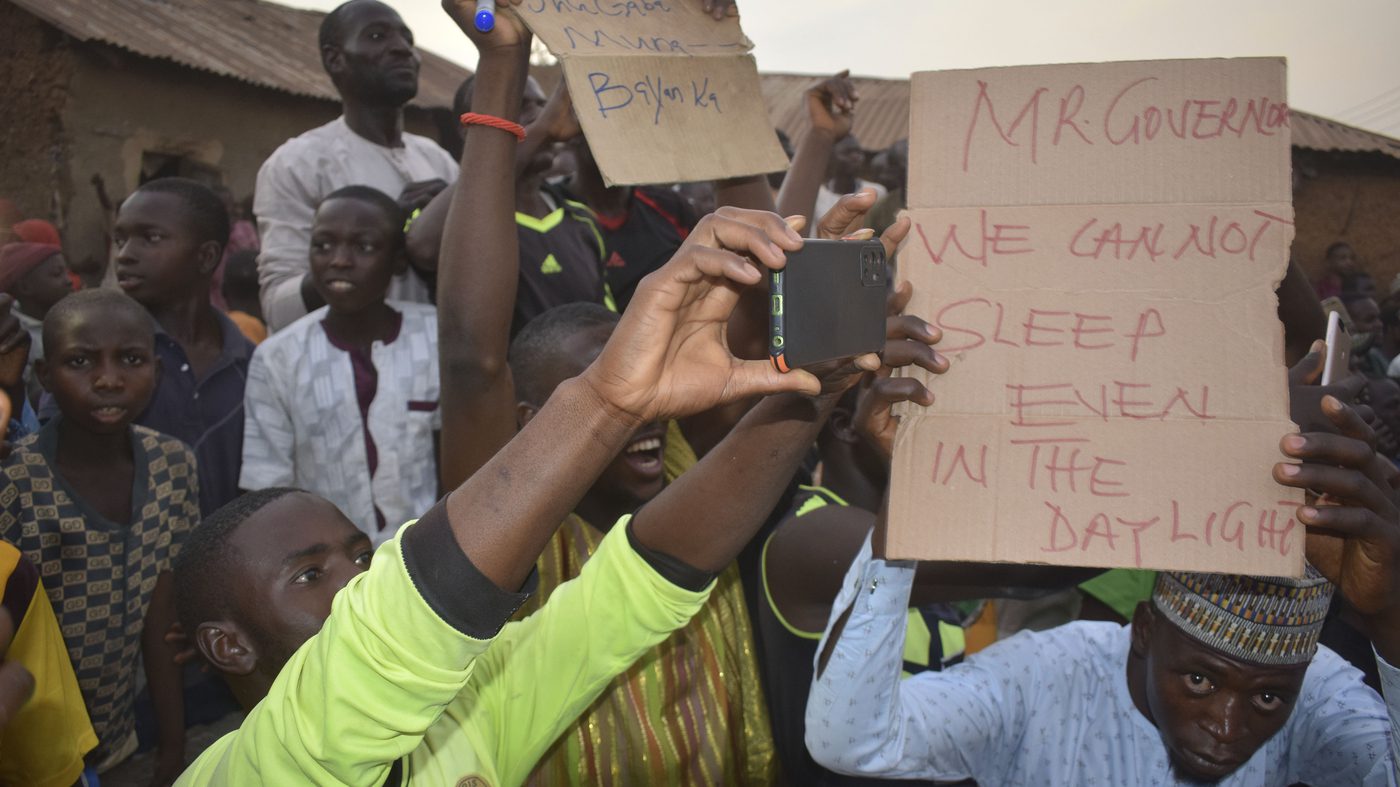 Muna
Bayan Ka
MR. GOVERNOR
WE CANNOT
SLEEP
EVEN
IN THE
DAY LIGHT